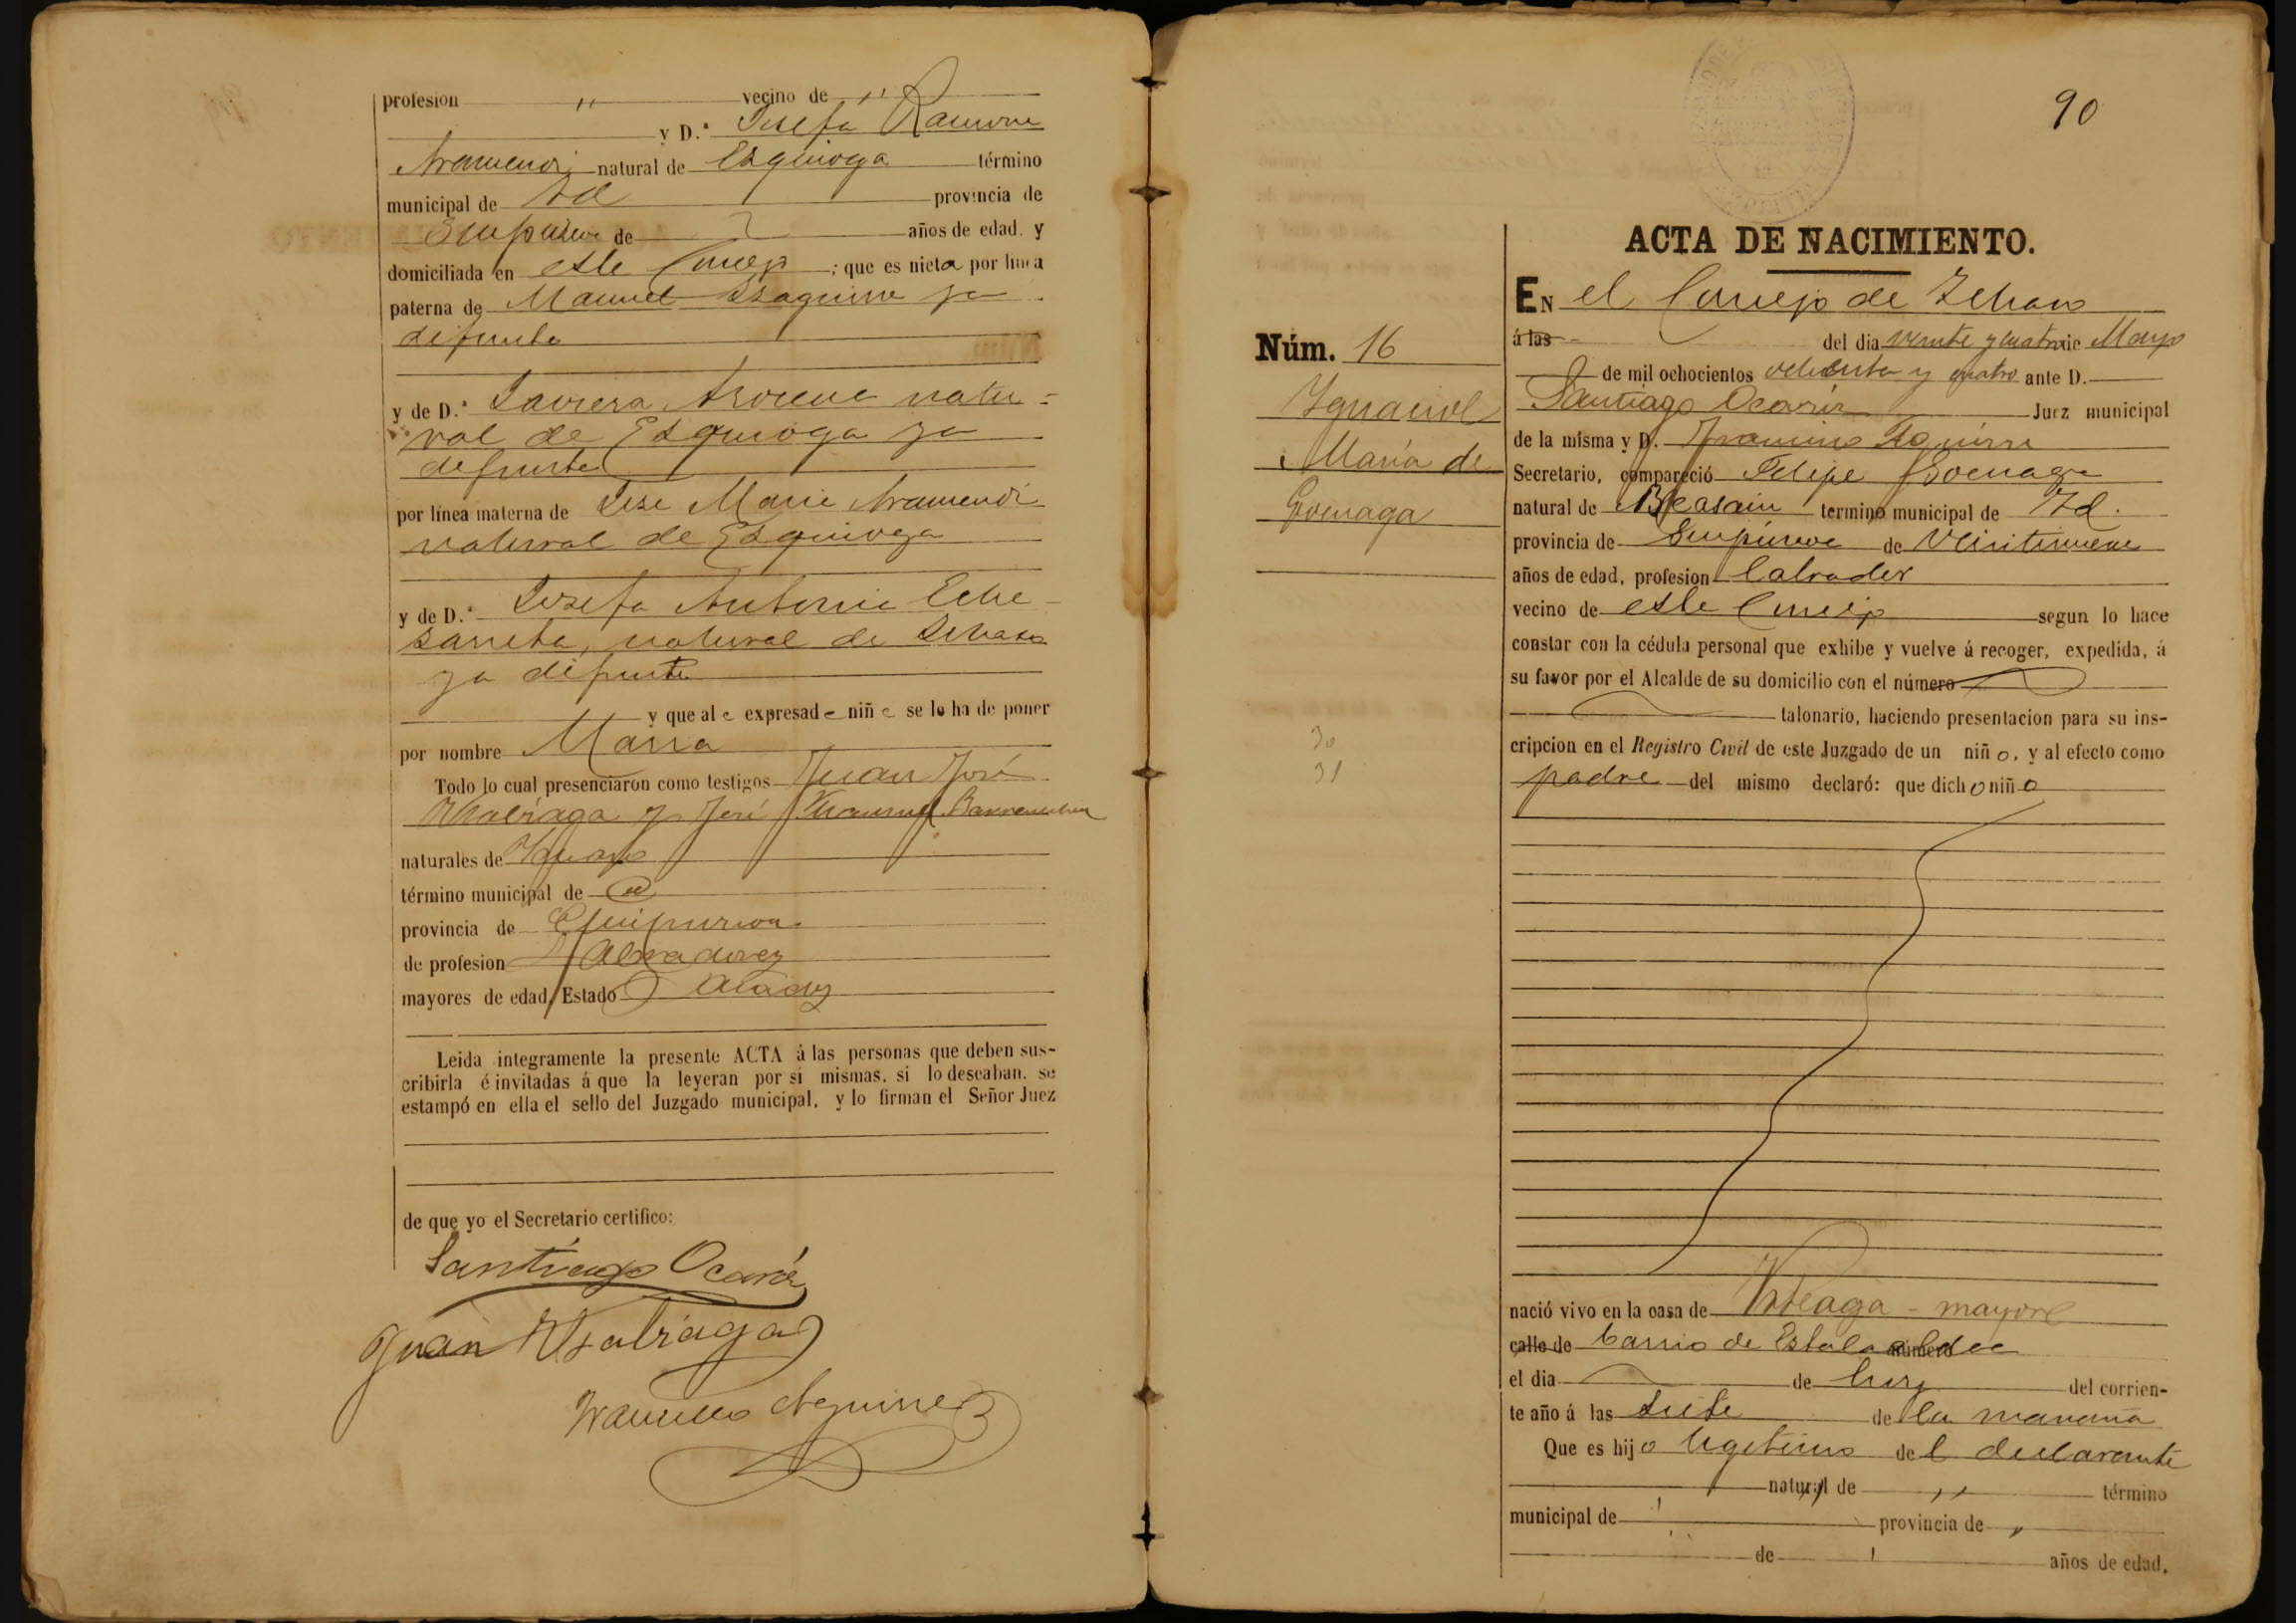 profesion " vecino de "
y D.ª Josefa Ramona
Aramendi natural de Ezquioga término
municipal de Id provincia de
Guipúzcoa de años de edad. y
domiciliada en este Concejo ; que es nieta por linea
paterna de Manuel Izaguirre ya
difunto
y de D.ª Javiera natu-
ral de Ezquioga ya
difunta
por línea materna de Jose Maria Aramendi
natural de Ezquioga
y de D.ª Josefa Antonia Eche
zarreta, natural de Ichaso
ya difunta
y que al expresad niñ se le ha de poner
por nombre Maria
Todo lo cual presenciaron como testigos Juan José
y José Manuel
naturales de
término municipal de id
provincia de Guipuzcoa
de profesion Labradores
mayores de edad, Estado
Leida integramente la presente ACTA á las personas que deben sus-
cribirla é invitadas á que la leyeran por si mismas, si lo deseaban, se
estampó en ella el sello del Juzgado municipal, y lo firman el Señor Juez
de que yo el Secretario certifico:
Santiago Ocariz
Juan
Francisco Aguirre
90
ACTA DE NACIMIENTO.
EN el Concejo de Ichaso
á las del dia veinte y cuatro de Mayo
de mil ochocientos ochenta y cuatro ante D.
Santiago Ocariz Juez municipal
de la misma y D. Francisco Aguirre
Secretario, compareció Felipe Goenaga
natural de Beasain termino municipal de Id.
provincia de Guipúzcoa de veintinueve
años de edad, profesion labrador
vecino de este Concejo segun lo hace
constar con la cédula personal que exhibe y vuelve á recoger, expedida, á
su favor por el Alcalde de su domicilio con el número
talonario, haciendo presentacion para su ins-
cripcion en el Registro Civil de este Juzgado de un niño, y al efecto como
padre del mismo declaró: que dicho niño
Núm. 16
Ygnacio
María de
Goenaga
30
31
nació vivo en la casa de Arteaga - mayor
calle de barrio de número
el dia de hoy del corrien-
te año á las siete de la mañana
Que es hijo legitimo del declarante
natural de " término
municipal de " provincia de "
de " años de edad.